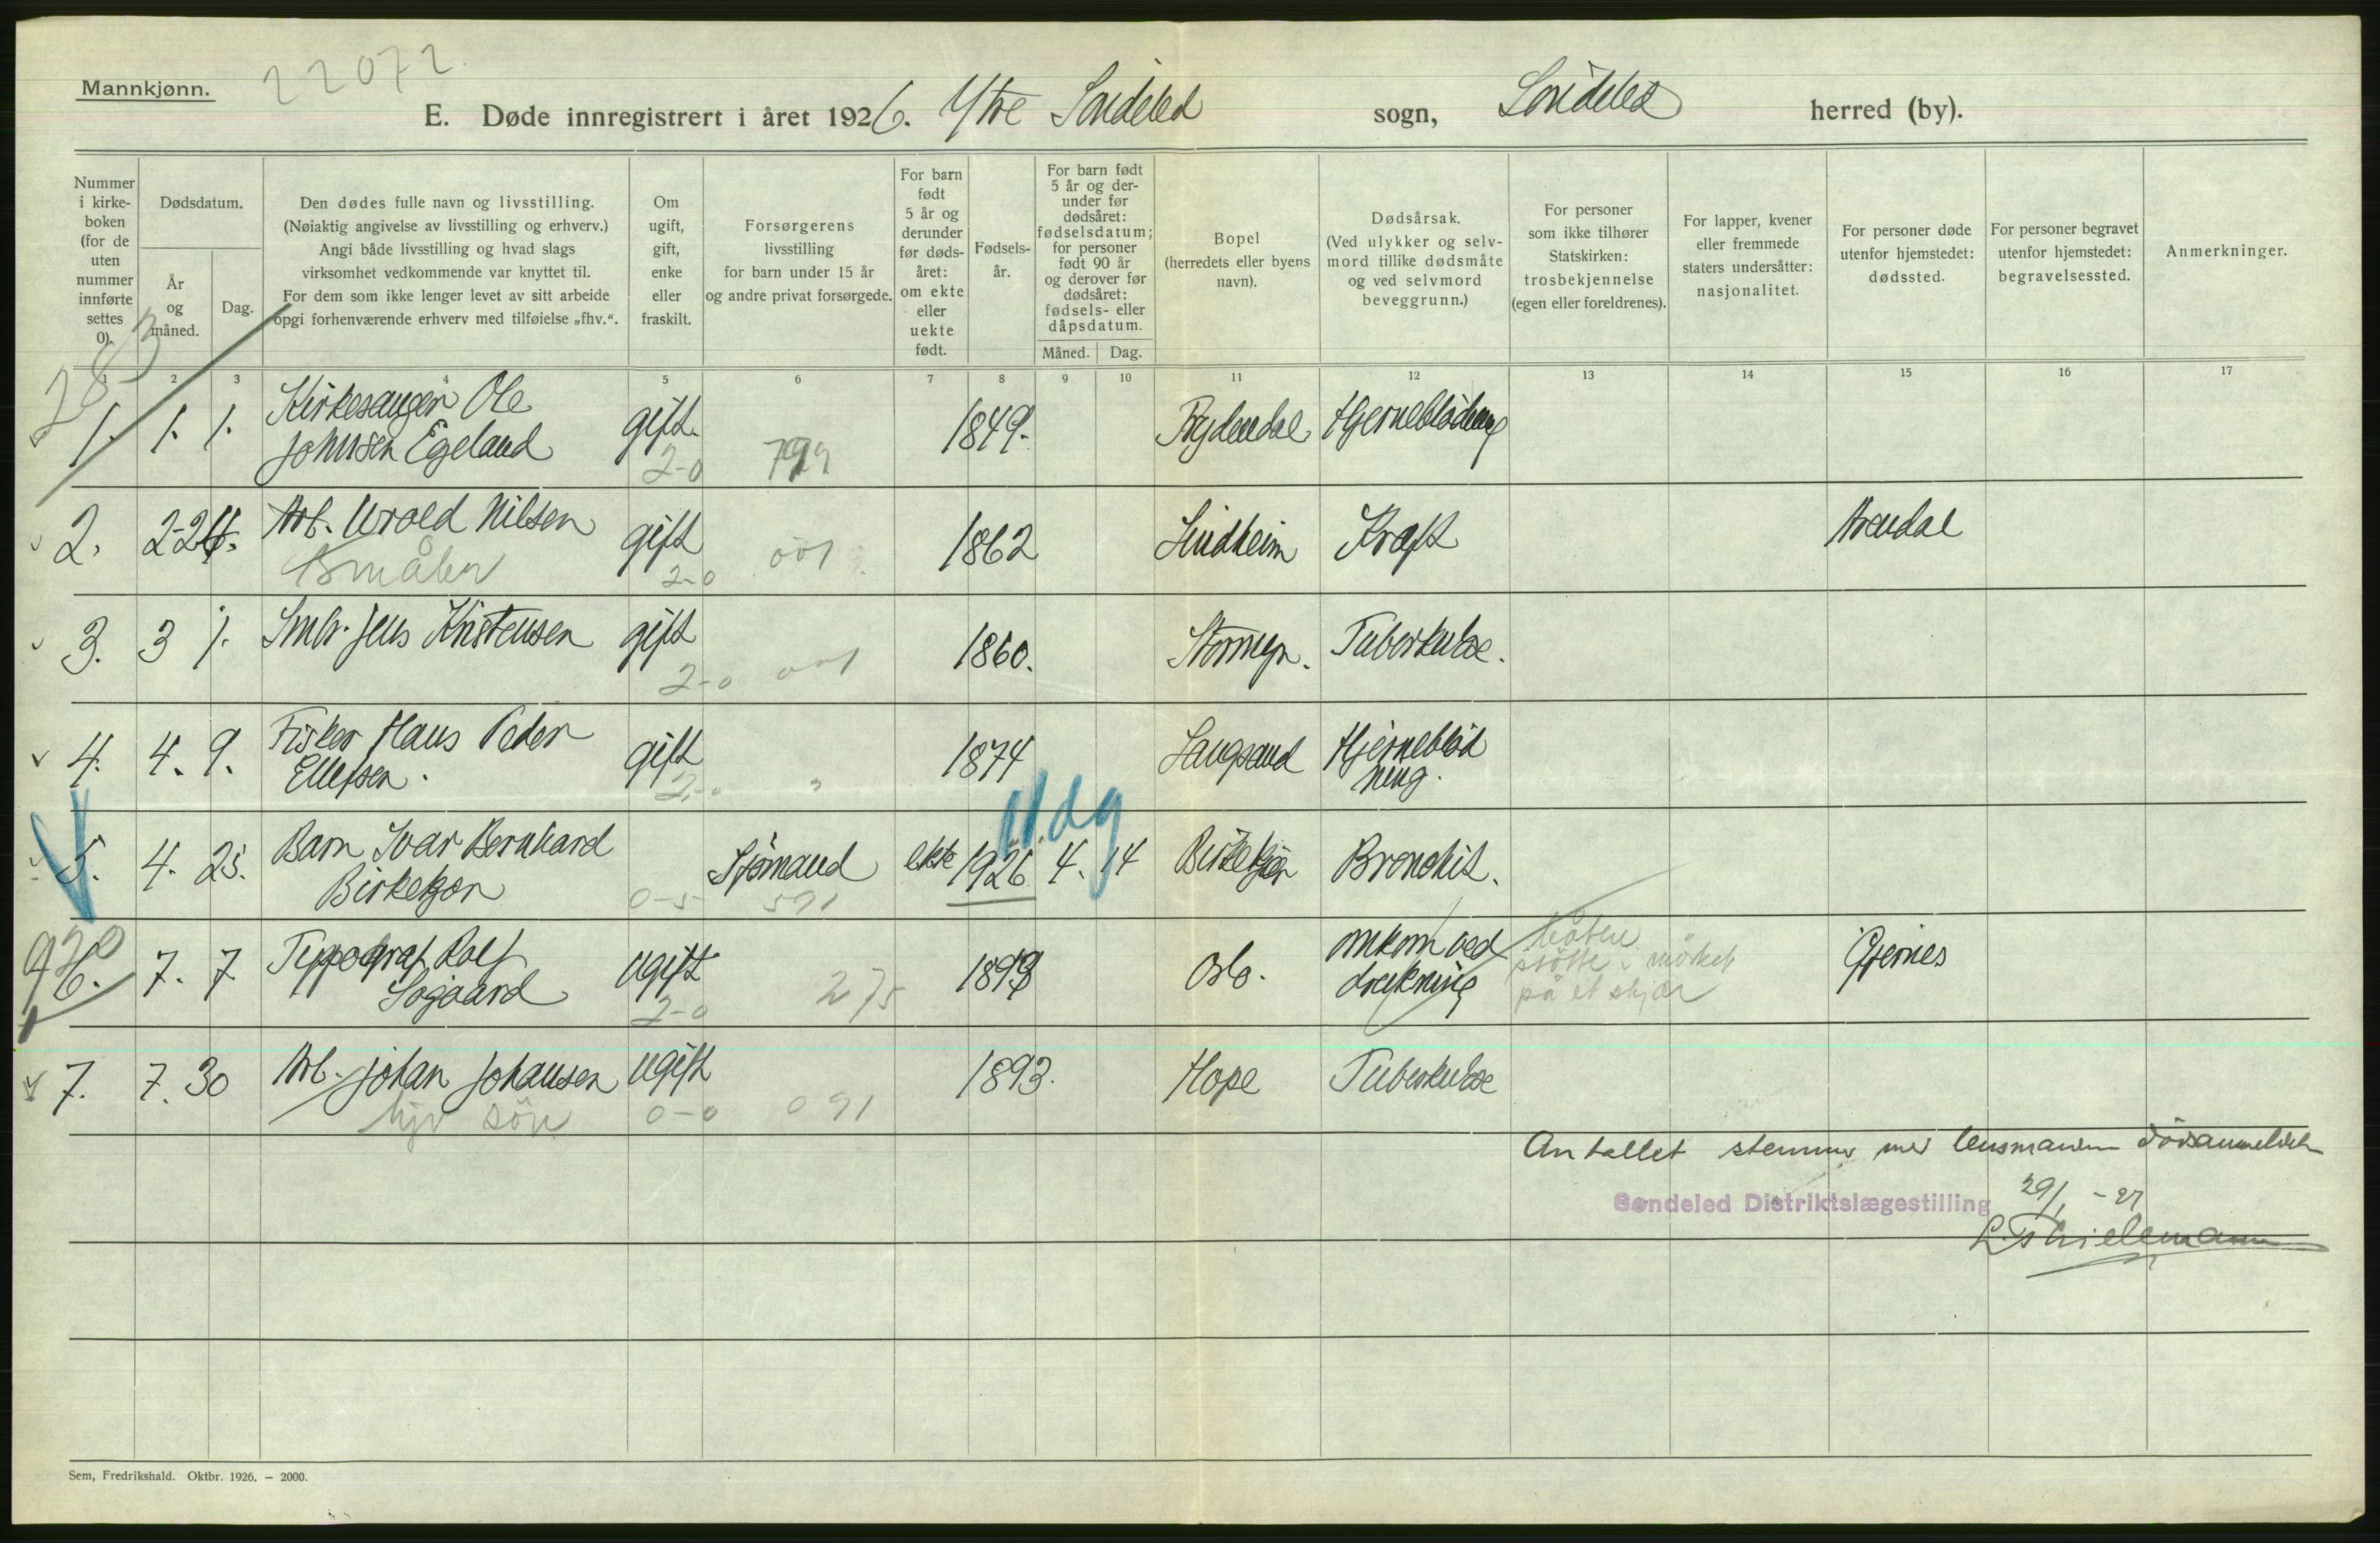 Mannkjønn.
22072.
E. Døde innregistrert i året 1926. Ytre Søndeled sogn, Søndeled herred (by).
Nummer i kirke-boken (for de uten nummer innførte settes 0).
Dødsdatum.
År og måned.
Dag.
Den dødes fulle navn og livsstilling.
(Nøiaktig angivelse av livsstilling og erhverv.)
Angi både livsstilling og hvad slags
virksomhet vedkommende var knyttet til.
For dem som ikke lenger levet av sitt arbeide
opgi forhenværende erhverv med tilføielse „fhv.“.
Om ugift, gift, enke eller fraskilt.
Forsørgerens
livsstilling
for barn under 15 år
og andre privat forsørgede.
For barn født 5 år og derunder før døds-året: om ekte eller uekte født.
Fødsels-år.
For barn født 5 år og der-under før dødsåret: fødselsdatum; for personer født 90 år og derover før dødsåret: fødsels- eller dåpsdatum.
Måned. Dag.
Bopel
(herredets eller byens
navn).
Dødsårsak.
(Ved ulykker og selv-
mord tillike dødsmåte
og ved selvmord
beveggrunn.)
For personer
som ikke tilhører
Statskirken:
trosbekjennelse
(egen eller foreldrenes).
For lapper, kvener
eller fremmede
staters undersåtter:
nasjonalitet.
For personer døde
utenfor hjemstedet:
dødssted.
For personer begravet
utenfor hjemstedet:
begravelsessted.
Anmerkninger.
1 2 3 4 5 6 7 8 9 10 11 12 13 14 15 16 17
283
1. 1. 1. Kirkesanger Ole Johnsen Egeland gift. 2-0 799 1849. Frydendal Hjerneblødning
2. 2 24. Arb. Uvald Nilsen gift 2-0 001 1862 Lindheim Kræft Arendal
Småbr
3. 3 1. Smbr. Jens Kristensen gift 2-0 001 1860. Stormyr. Tuberkulose.
4. 4. 9. Fisker Hans Peder Ellefsen. gift 2-0 1874 Langsand Hjerneblød ning.
11. dg
5. 4. 25. Barn Ivar Bernhard Birkekjær 0-5 Sjømand 591 ekte 1926 4. 14 Birkekjær Bronchit.
920
6. 7. 7 Typograf Rolf Søgaard ugift 2-0 275 1899 Oslo. omkom ved drukning båten støtte i mørket på et skjær Gjernes
7. 7. 30 Arb. Johan Johansen ugift 0-0 091 1893. Hope Tuberkulose
hjv søn
Antallet stemmer med lensmanden dødsanmeldelser
Søndeled Distriktslægestilling 29/1 - 27
L. Thielemann
Sem, Fredrikshald. Oktbr. 1926. — 2000.